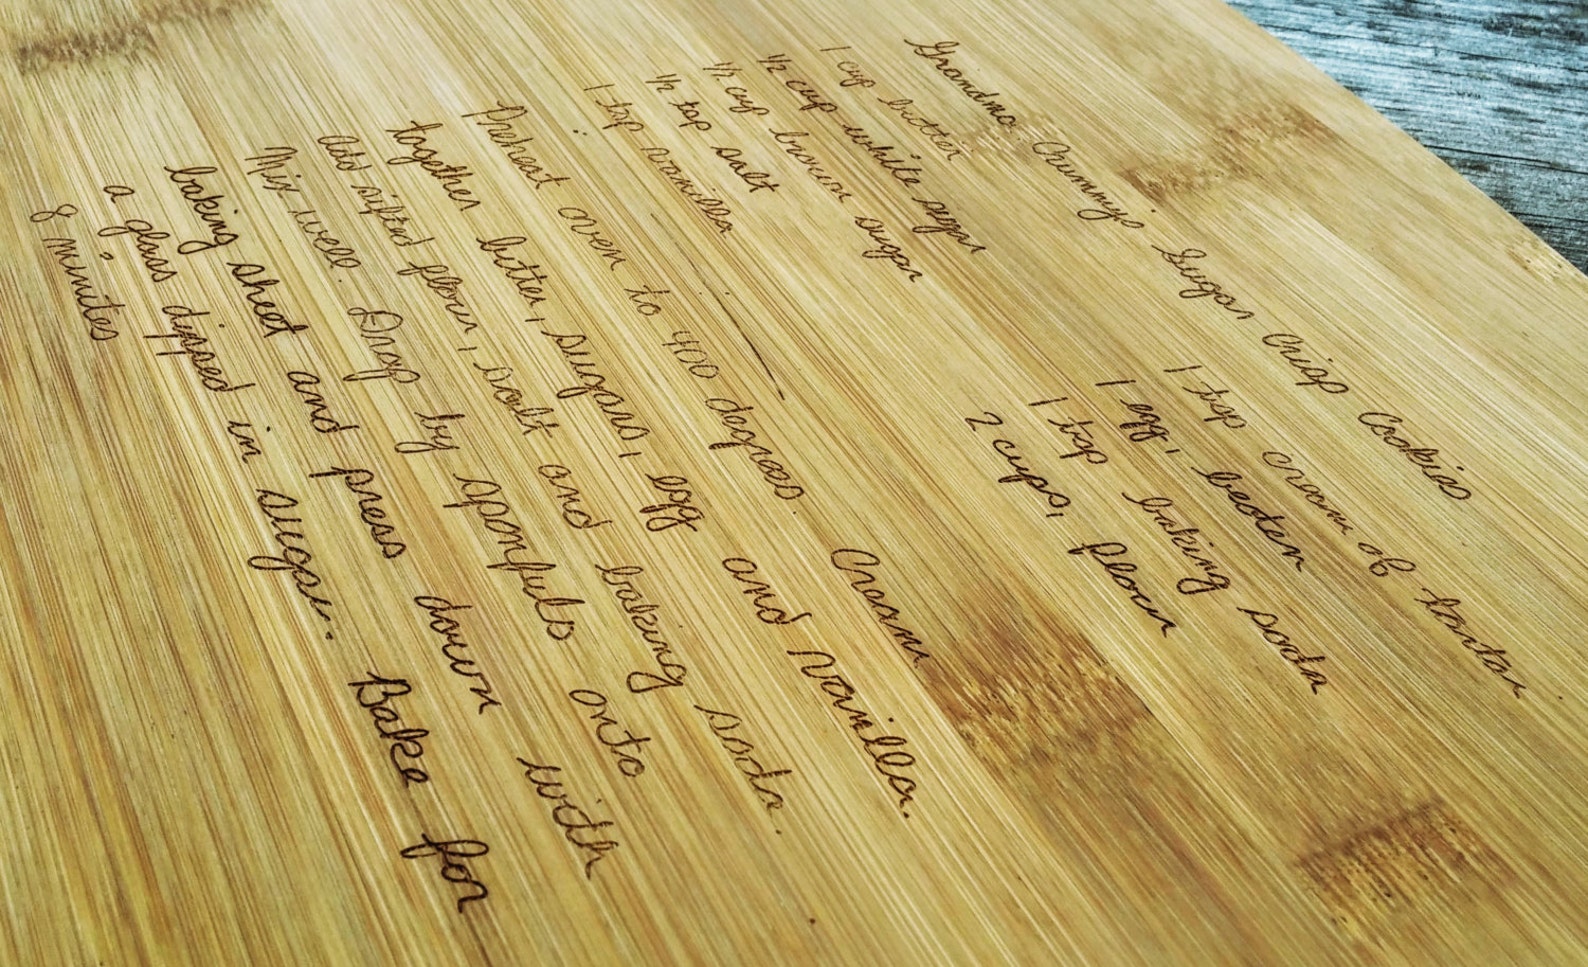 Grandma Crummy's Sugar Crisp Cookies
1 cup butter
1/2 cup white sugar
1/2 cup brown sugar
1/2 tsp salt
1 tsp vanilla
1 tsp cream of tartar
1 egg, beaten
1 tsp baking soda
2 cups, flour
Preheat oven to 400 degrees. Cream
together butter, sugars, egg and vanilla.
Add sifted flour, salt and baking soda.
Mix well. Drop by spoonfuls onto
baking sheet and press down with
a glass dipped in sugar. Bake for
8 minutes